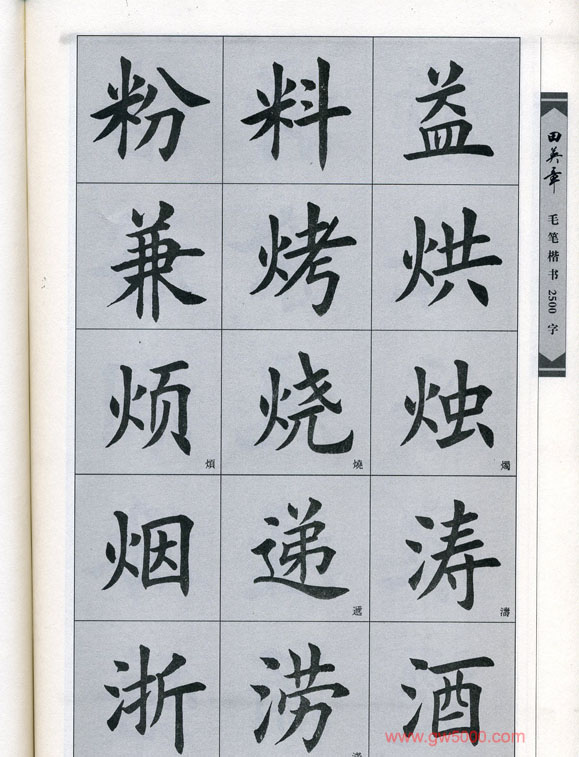 粉 料 益
兼 烤 烘
烦 煩 烧 燒 烛 燭
烟 递 遞 涛 濤
浙 涝 酒
田英章
毛笔楷书2500字
www.gw5000.com